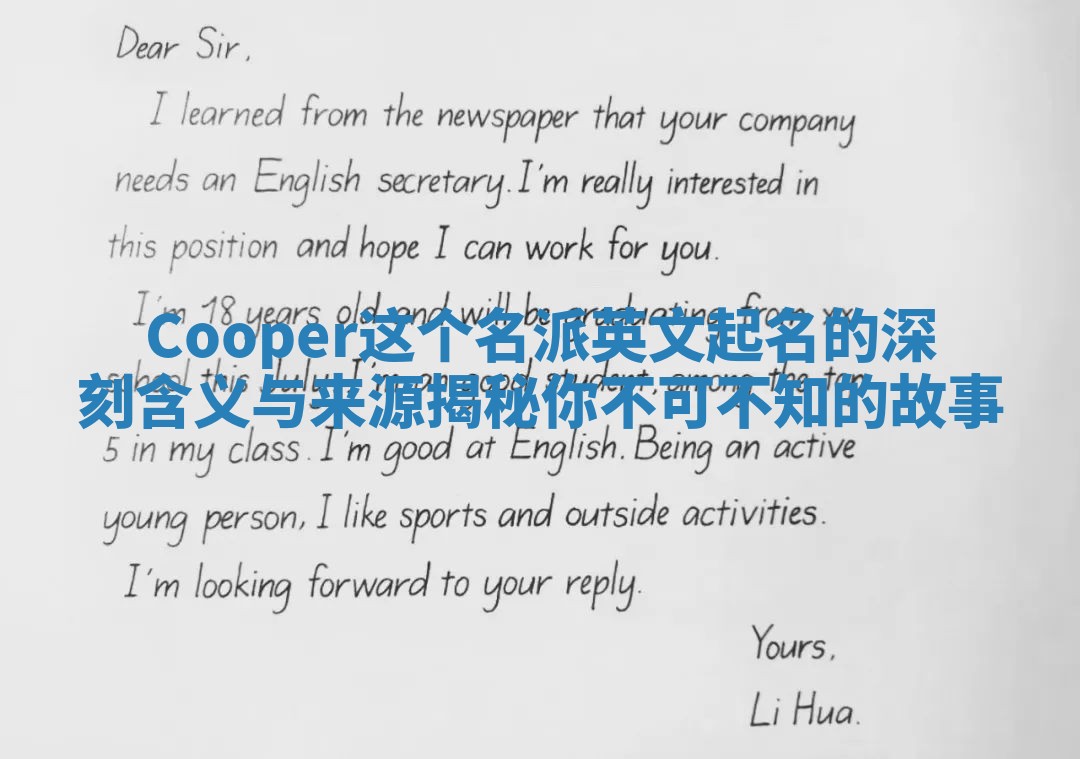 Dear Sir,
I learned from the newspaper that your company
needs an English secretary. I'm really interested in
this position and hope I can work for you.
I'm 18 years old and will be graduating from xx
Cooper这个名派英文起名的深
school this July. I'm an good student, among the top
刻含义与来源揭秘你不可不知的故事
5 in my class. I'm good at English. Being an active
young person, I like sports and outside activities.
I'm looking forward to your reply.
Yours,
Li Hua.